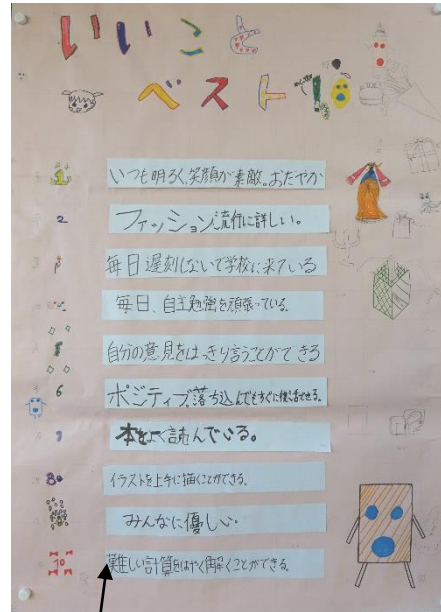 いいこと
ベスト10
1 いつも明るく、笑顔が素敵。おだやか
2 ファッション流行に詳しい。
3 毎日遅刻しないで学校に来ている
4 毎日、自主勉強を頑張っている。
5 自分の意見をはっきり言うことができる
6 ポジティブ。落ち込んでもすぐに
7 本をよく読んでいる。
8 イラストを上手に描くことができる。
みんなに優しい。
10 難しい計算をはやく解くことができる。